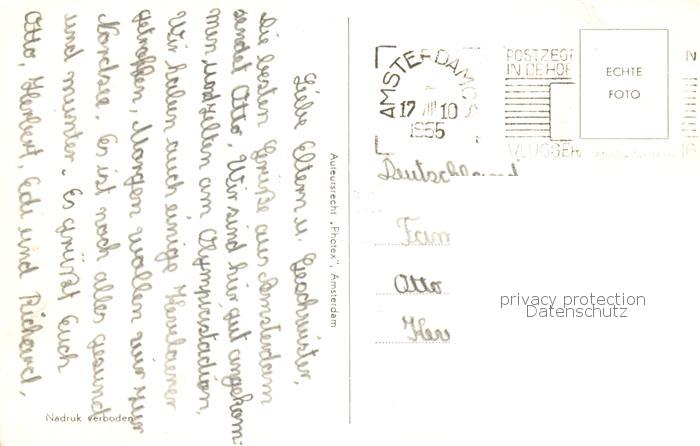 Liebe Eltern u. Geschwister,
Die besten Grüße aus Amsterdam
sendet Otto, Wir sind hir gut angekom-
men, und zelten am Olympiastadion,
Wir haben auch einige
getroffen, Morgen wollen wir zur
Nordsee. Es ist noch alles gesund
und munter. Es grüßt Euch
Otto, Herbert, Edi und Richard.
Auteursrecht „Photex”, Amsterdam
Nadruk verboden
AMSTERDAM CS
17 III 10
1955
POSTZEG
IN DE HOE
VLUGGER
N
ECHTE
FOTO
Deutschland
Fam
Otto
Her
privacy protection
Datenschutz